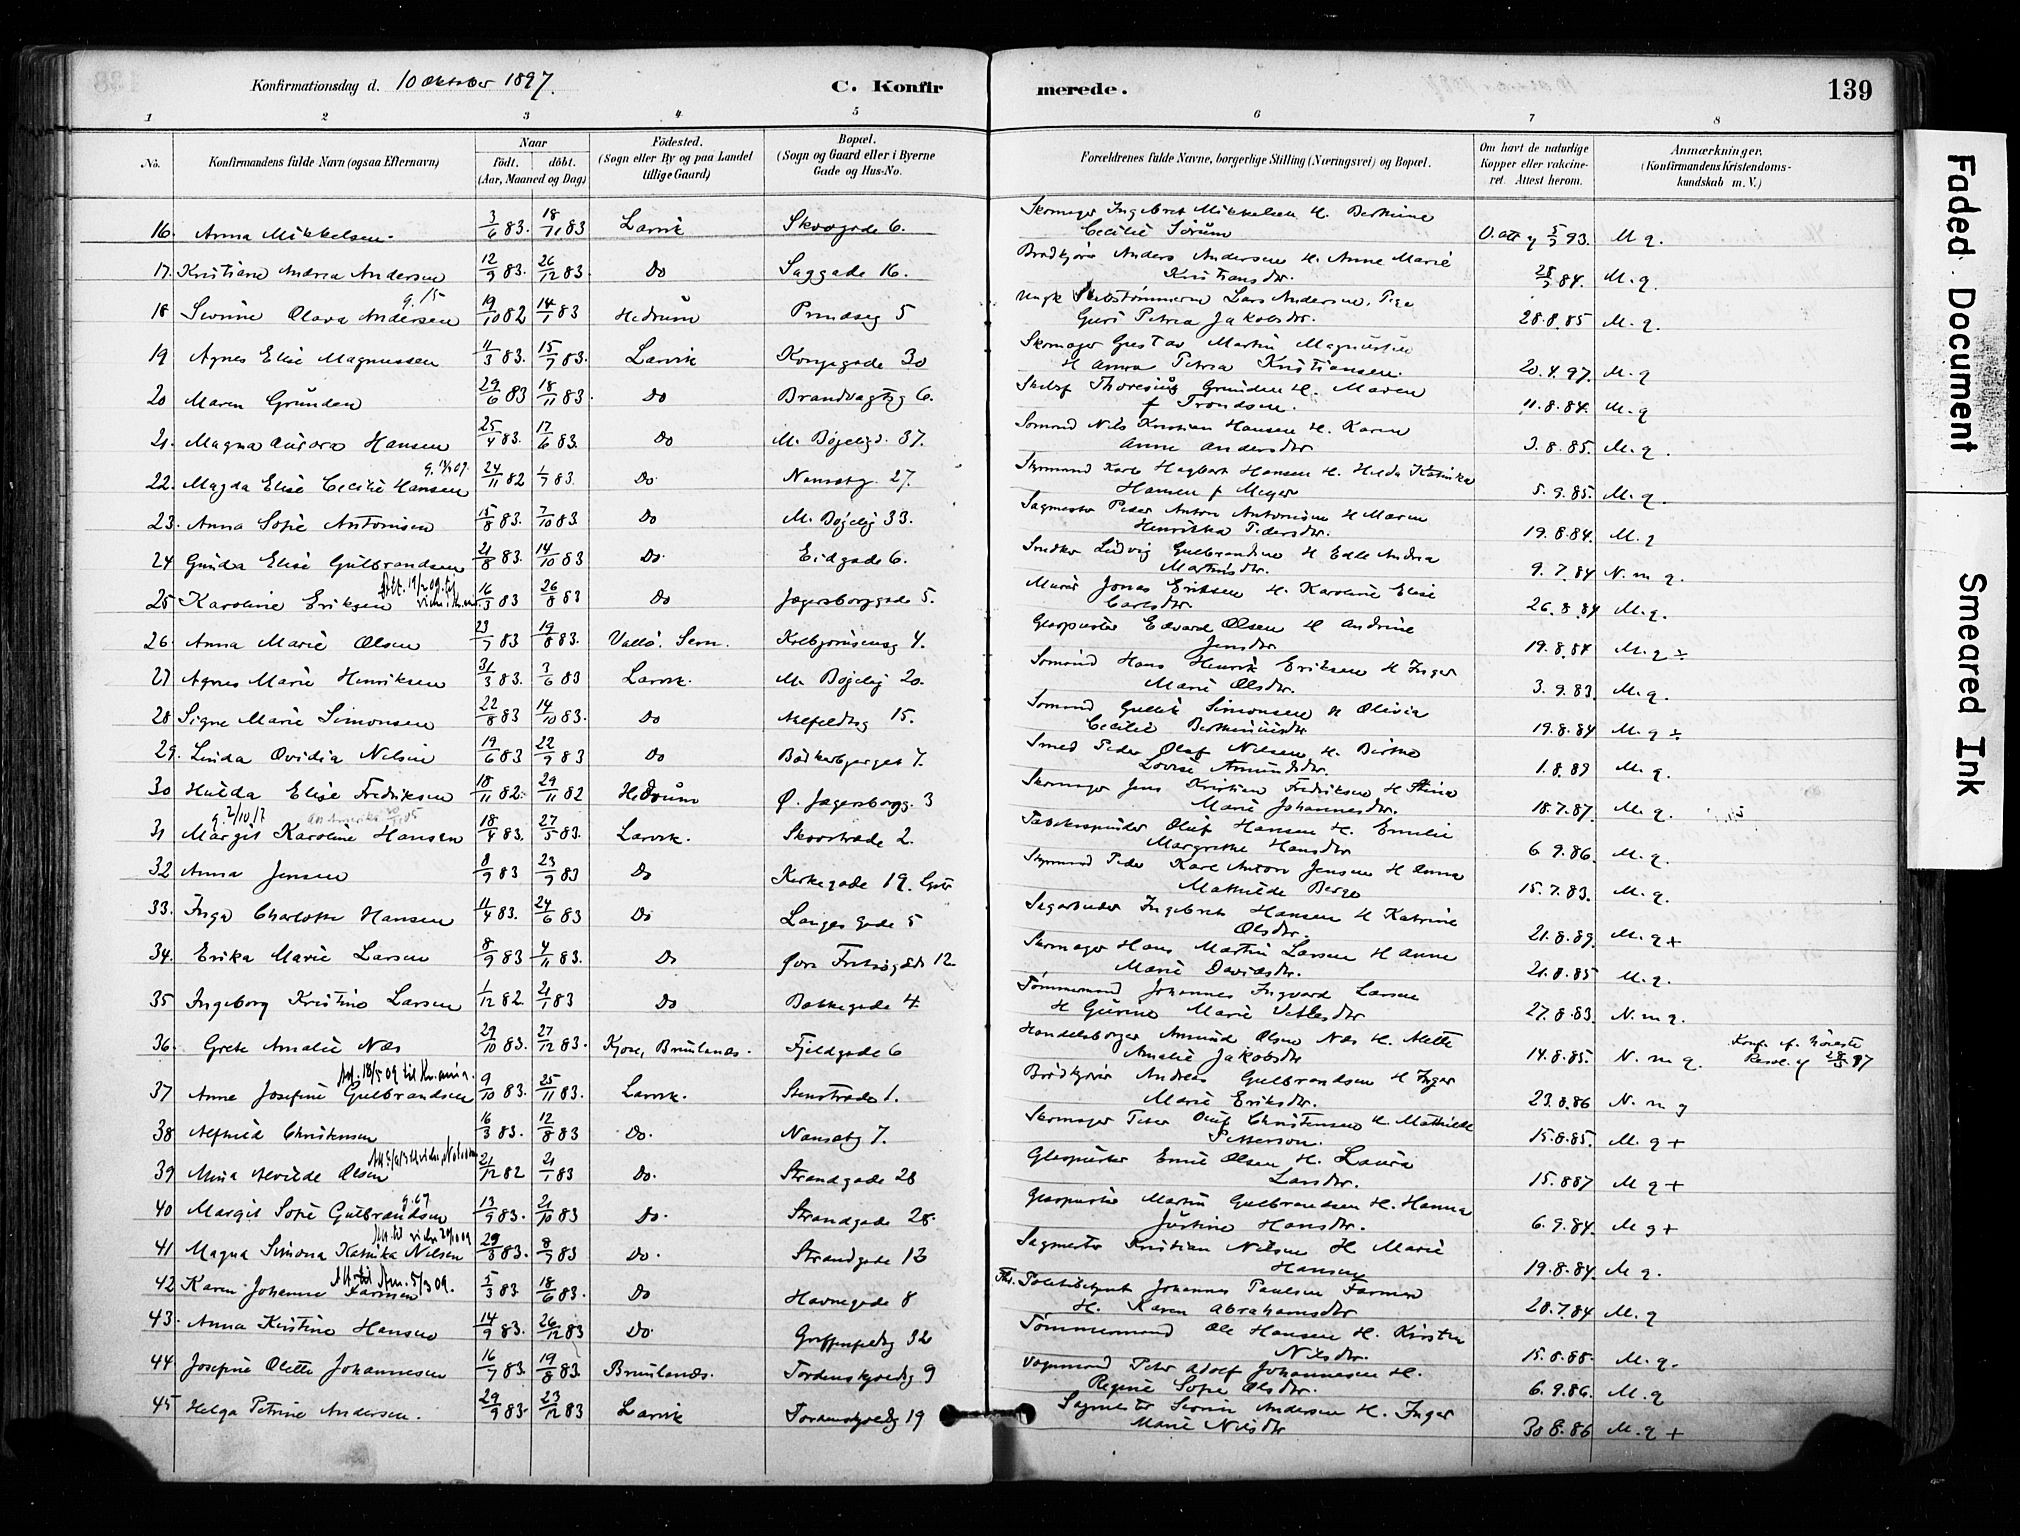 Konfirmationsdag d. 10 Oktober 1897. C. Konfirmerede. 139
1 2 3 4 5 6 7 8
No. Konfirmandens fulde Navn (ogsaa Efternavn) Naar født. døbt. (Aar, Maaned og Dag) Fødested. (Sogn eller By og paa Landet tillige Gaard) Bopæl. (Sogn og Gaard eller i Byerne Gade og Hus-No. Forældrenes fulde Navne, borgerlige Stilling (Næringsvei) og Bopæl. Om havt de naturlige Kopper eller vakcineret. Attest herom. Anmærkninger. (Konfirmandens Kristendomskundskab m. V.)
16. Anna Mikkelsen. 3/6 83. 18/11 83 Larvik Skovgade 6. Skomager Ingebret Mikkelsen H. Bertine
Cecilie Sørum 93. M g.
17. Kristiane Andrea Andersen 12/9 83. 26/12 83. Do Saggade 16. Brødkjører Anders Andersen H. Anne Marie
Kristiansdtr. 84. M. g.
18 Severine Olava Andersen 19/10 82 14/1 83 Hedrum Prindseg 5 Lars Andersen, Pige
Guri Petrea Jakobsdtr. 28.8.85 M. g.
19 Agnes Elise Magnussen 11/3 83. 15/7 83. Larvik Kongegade 30 Skomager Gustav Martin Magnussen
H Anna Petrea Kristiansen. 20.4.97. M. g
20 Maren Grunden 29/6 83 18/11 83. Do Brandvagtsg 6. Grunden H. Maren
f Trondsen. 11.8.84. M. g
21. Magna Aurora Hansen 25/4 83. 17/6 83. Do M. Bøjelgd. 37. Sømand Nils Kristian Hansen H. Karen
Anne Andersdtr. 3.8.85. M. g.
22. Magda Elise Cecilie Hansen 24/11 82 1/7 83. Do Nansetg. 27. Styrmand Karl Hagbart Hansen H. Hilda Katinka
Hansen f Meyer 5.9.85. M. g.
23. Anna Sofie Antonisen 15/8 83. 7/10 83 Do M. Bøjelg 33. Sagmester Peder Anton Antonisen H Maren
Henrikka Pedersdtr. 19.8.84. M. g
24 Gunda Elise Gulbrandsen 21/8 83. 14/10 83 Do. Eidgade 6. Snedker Ludvig Gulbrandsen H Edle Andrea
Martinsdtr. 9.7.84 N. m g.
25 Karoline Eriksen 16/3 83 26/8 83 Do Jegersborggade 5. Murer Jonas Eriksen H. Karoline Elise
Carlsdtr. 26.8.84 M. g.
26. Anna Marie Olsen 23/7 83 19/8 83. Vallø. Sem. Kolbjørnsensg 4. Glaspuster Edvard Olsen H Andrine
Jensdtr 19.8.84 M. g ÷
27 Agnes Marie Henriksen 31/3 83. 3/6 83 Larvik. M. Bøjelg 20. Sømand Hans Henrik Eriksen H Inger
Marie Olsdtr. 3.9.83. M. g.
28 Signe Marie Simonsen 22/8 83 14/10 83. Do 15. Sømand Gullik Simonsen H Olivia
Cecilie 19.8.84 M. g ÷
29. Linda Ovidia Nilsen 19/6 83 22/9 83 Do Bødkerbjerget 7. Smed Peder Olaf Nilsen H. Birthe
Lovise Amundsdtr. 1.8.89 M. g.
30 Hulda Elise Fredriksen 18/11 82. 29/11 82 Hedrum Ø. Jægersborgg. 3 Skomager Jens Kristian Fredriksen H Stina
Marie Johannesdtr. 18.7.87. M. g.
g. 2/10/17
31 Margit Karoline Hansen 18/4 83. 27/5 83. Larvik. Skovstræde 2. Tobaksspinder Oluf Hansen H. Emilie
Margrethe Hansdtr 6.9.86. M. g.
32 Anna Jensen 8/9 83 23/9 83 Do Kirkegade 19. Styrmand Peder Karl Anton Jensen H Anna
Mathilde Berge 15.7.83. M. g.
33. Inga Charlotte Hansen 11/4 83. 24/6 83 Do Langes gade 5 Sagarbeider Ingebret Hansen H Katrine
Olsdtr. 21.8.89. M. g +
34. Erika Marie Larsen 8/9 83 4/11 83. Do 12 Skomager Hans Martin Larsen H Anne
Marie Davidsdtr. 21.8.85 M. g.
35 Ingeborg Kristine Larsen 1/12 82 21/1 83 Do Bakkegade 4. Tømmermand Johannes Ingvard Larsen
H Gurine Marie Vetlesdtr 27.8.83. N. m g.
36. Grete Amalie Næs 29/10 83. 27/12 83. Kjose, Brunlanes. Fjeldgade 6 Handelsborger Amund Olsen Næs H. Mette
Amelie Jakobsdtr 14.8.85. N. m g. Konf. ef. biskops Resol. af 97
37 Anne Josefine Gulbrandsen Att. 18/5 09 til Kr.ania. 9/10 83. 25/11 83. Larvik. Stenstræde 1. Brødkjører Andreas Gulbrandsen H Inger
Marie Eriksdtr. 23.8.86 N. m g
38 Alfhild Christensen 16/3 83. 12/8 83 Do. Nansetg 7. Skomager Peter Oluf Christensen H. Mathilde
Petterson. 15.8.85. M. g +
39 Mina Alvilde Olsen 21/12 82 21/1 83 Do. Strandgade 28 Glaspuster Emil Olsen H. Laura
Larsdtr. 15.8 87 M g +
40 Margit Sofie Gulbrandsen 13/9 83. 21/10 83 Do. Strandgade 28. Glaspuster Martin Gulbrandsen H. Hanna
Justine Hansdtr. 6.9.84. M g +
41 Magna Simona Katinka Nilsen 29/3 83. 8/7 83 Do. Strandgade 13 Sagmester Kristian Nilsen H Marie
Hansen 19.8.84. M g.
42 Karen Johanne Farmen 5/3 83 18/6 83. Do Havnegade 8 Politibetjent Johannes Paulsen Farmen
H. Karen Abrahamsdtr 20.7.84 M. g
43. Anna Kristine Hansen 14/9 83. 26/12 83 Do. Griffenfeldsg 32 Tømmermand Ole Hansen H. Kirsten
Nilsdtr. 15.8.88. M. g.
44 Josefine Olette Johannesen 16/7 83. 19/8 83. Brunlanes. Tordenskjoldsg 9 Vognmand Peter Adolf Johannesen H.
Regine Sofie Olsdtr. 6.9.86. M. g
45 Helga Petrine Andersen. 29/9 83. 23/12 83 Larvik Tordenskjoldsg 19 Sagmester Severin Andersen H. Inger
Marie Nilsdtr 30.8.86 M. g +
Faded Document
Smeared Ink